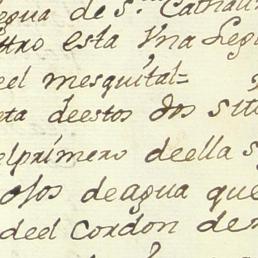 egua de S.ta Cathali
ttro esta Vna Legu
eel mesquital=
ta deestos dos siti
elprimero deella s
ojos deagua que
deel Cordon de